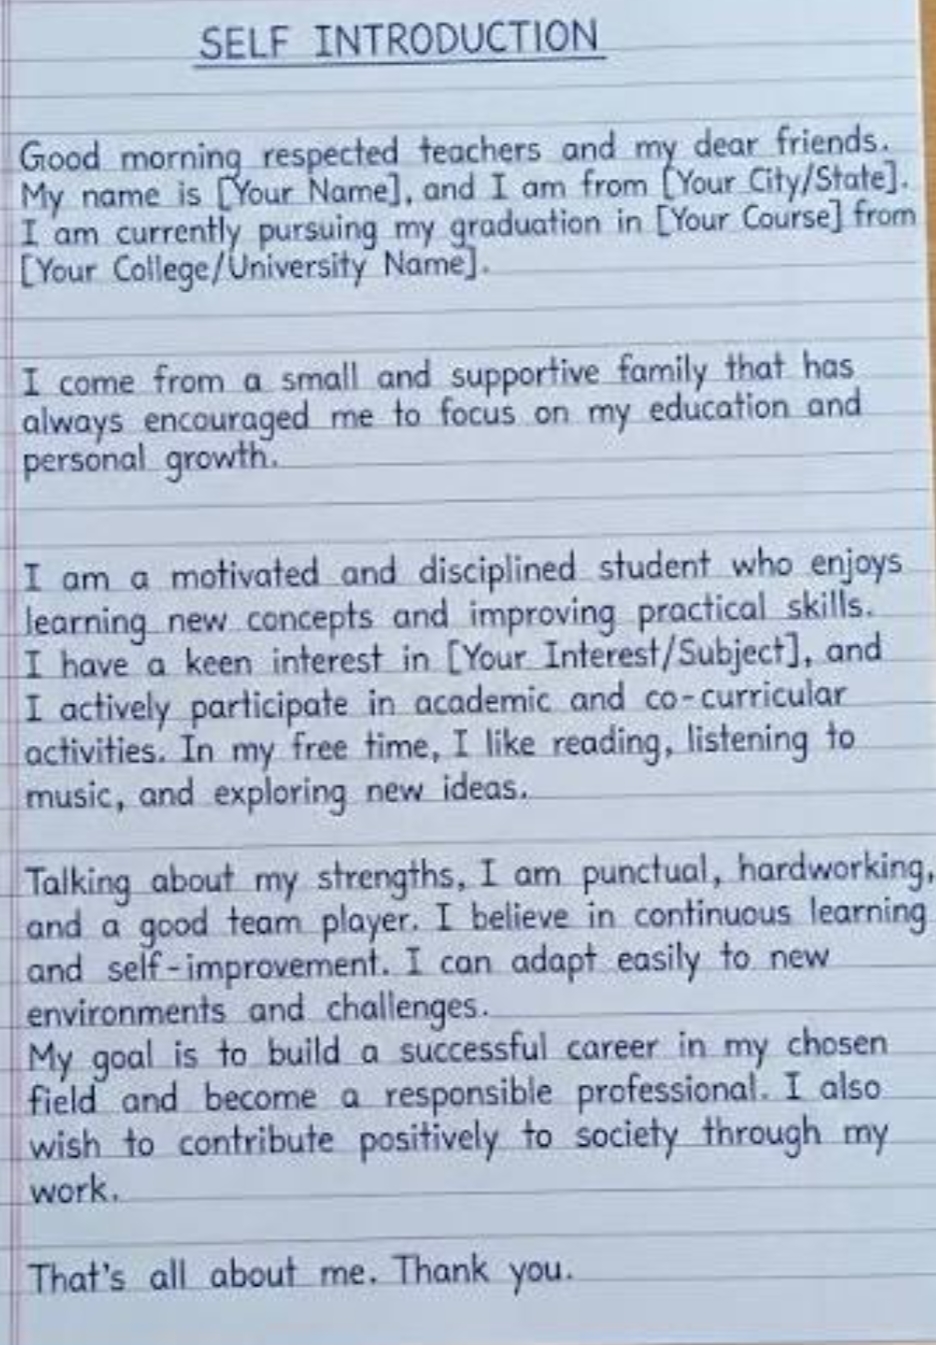 SELF INTRODUCTION
Good morning respected teachers and my dear friends.
My name is [Your Name], and I am from [Your City/State].
I am currently pursuing my graduation in [Your Course] from
[Your College/University Name].
I come from a small and supportive family that has
always encouraged me to focus on my education and
personal growth.
I am a motivated and disciplined student who enjoys
learning new concepts and improving practical skills.
I have a keen interest in [Your Interest/Subject], and
I actively participate in academic and co-curricular
activities. In my free time, I like reading, listening to
music, and exploring new ideas.
Talking about my strengths, I am punctual, hardworking,
and a good team player. I believe in continuous learning
and self-improvement. I can adapt easily to new
environments and challenges.
My goal is to build a successful career in my chosen
field and become a responsible professional. I also
wish to contribute positively to society through my
work.
That's all about me. Thank you.